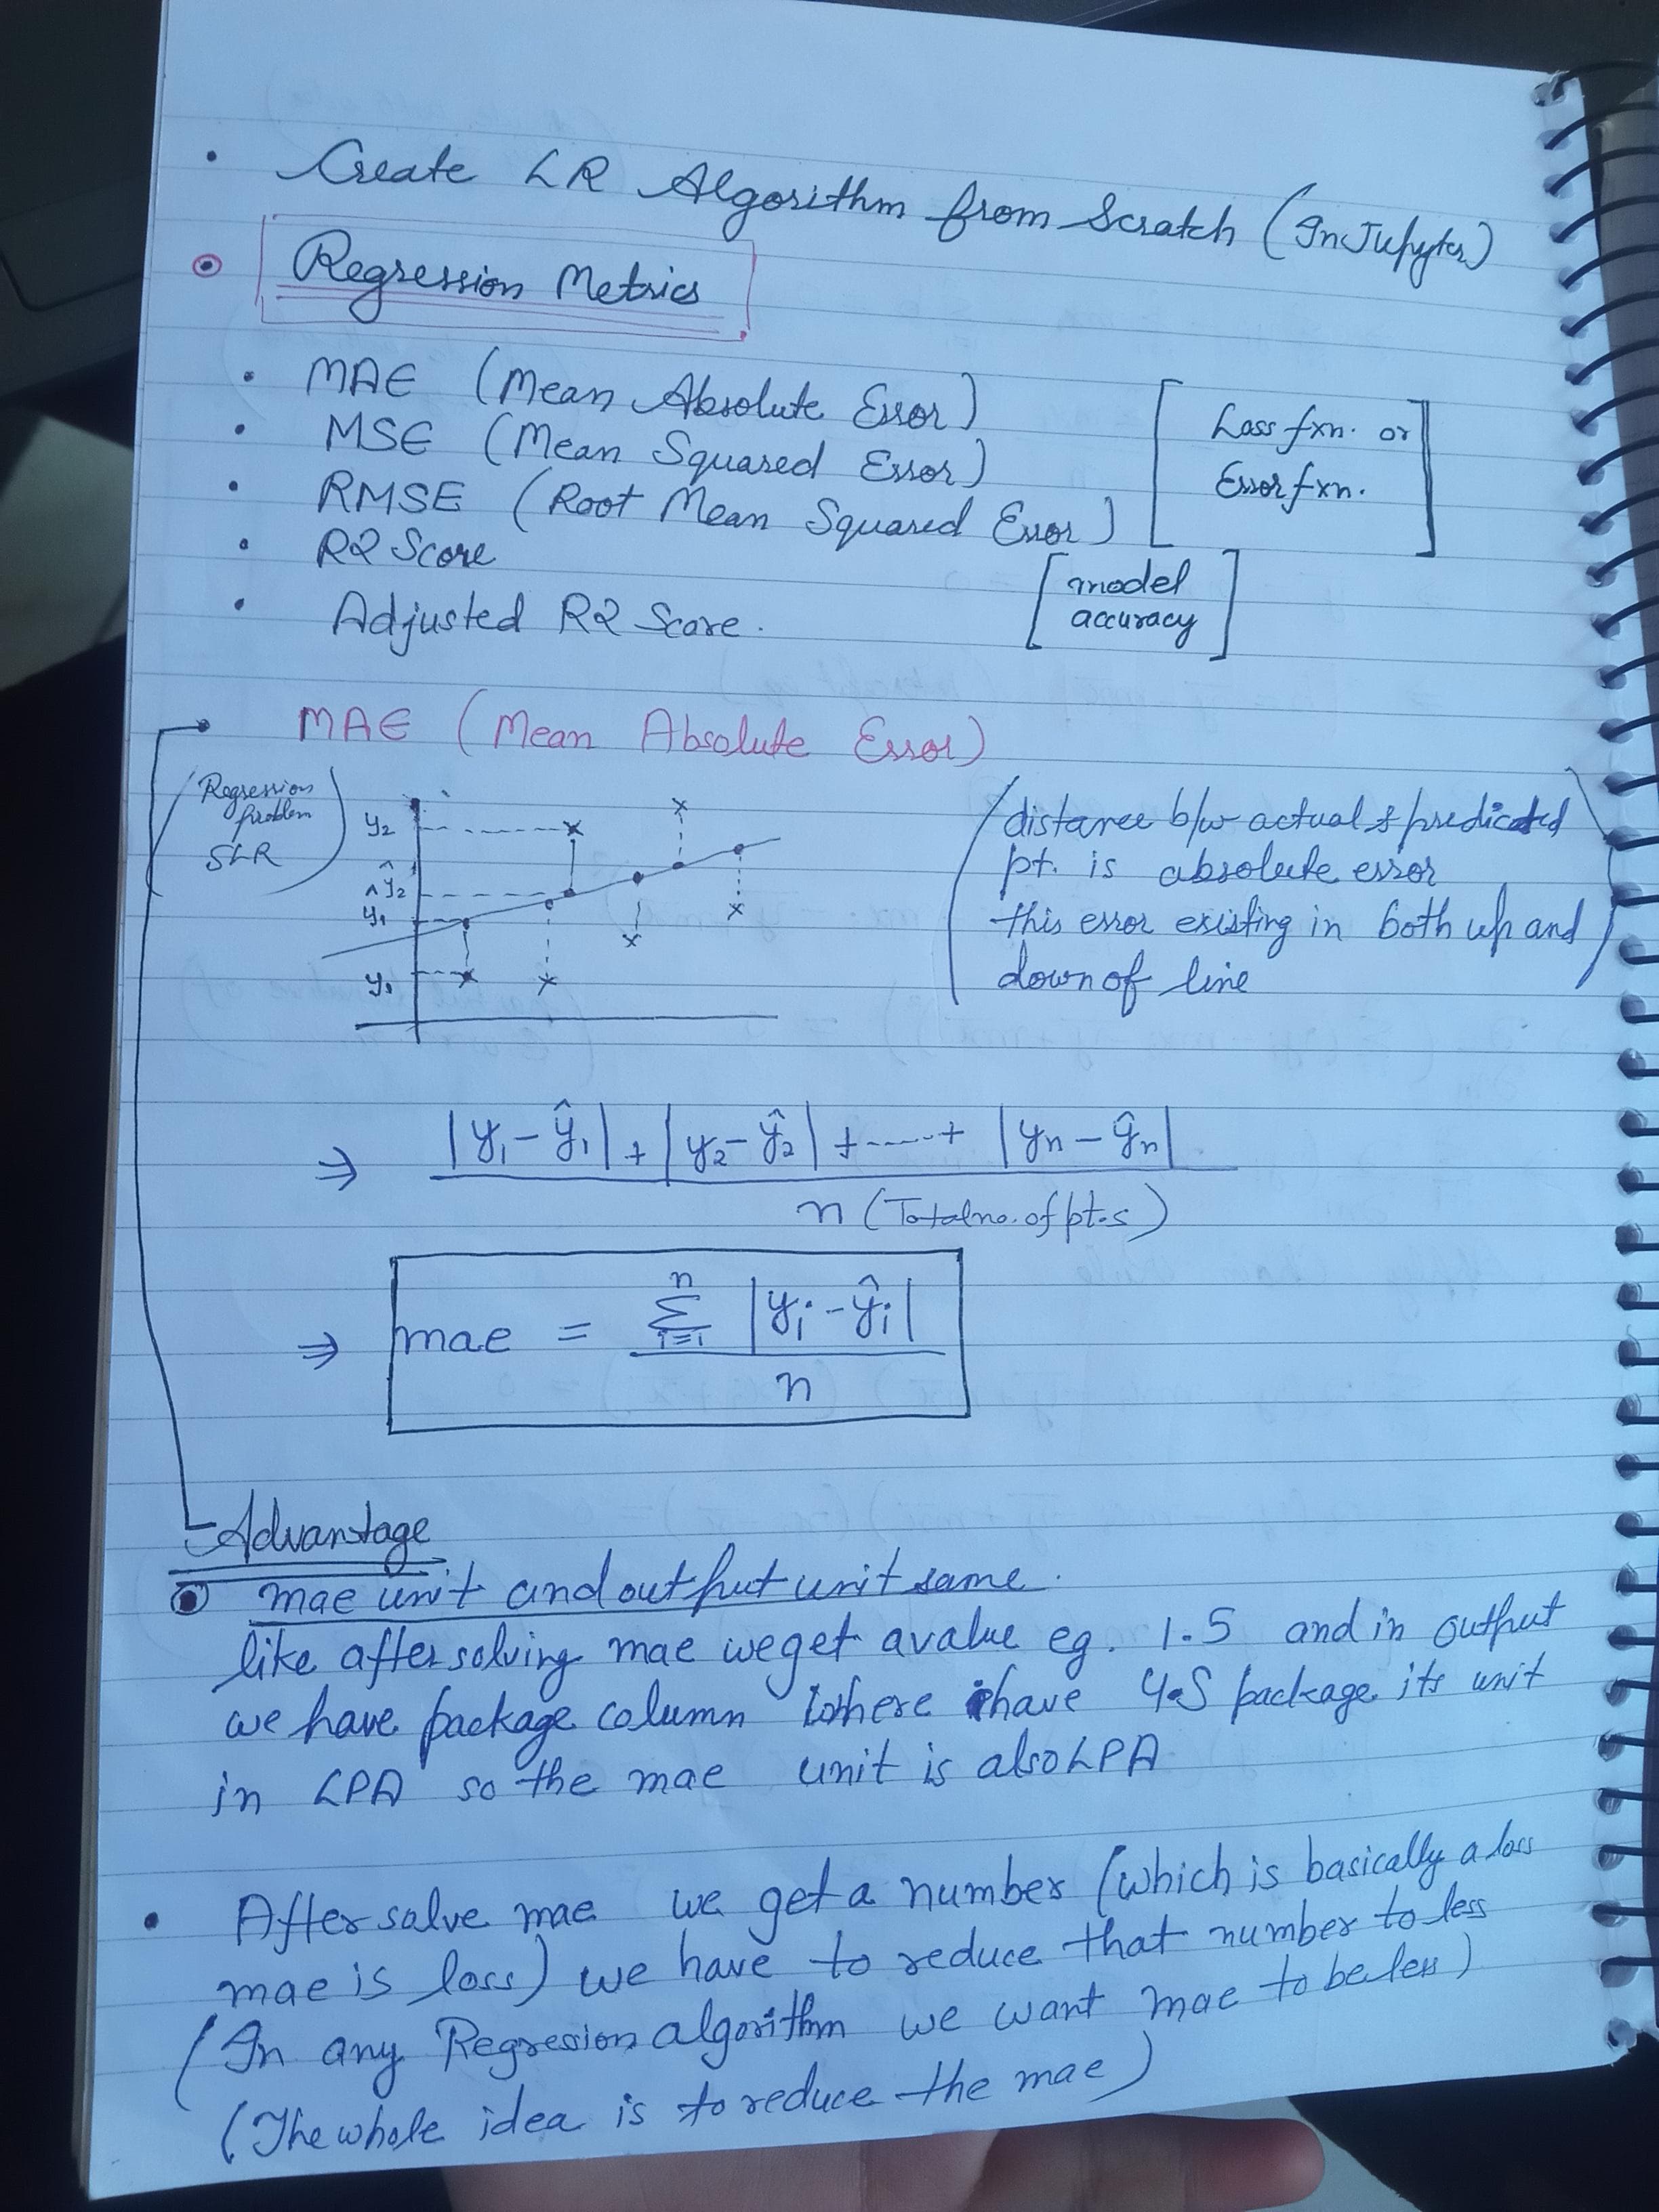 • Create LR Algorithm from Scratch (In Jupyter)
Regression Metrics
• MAE (Mean Absolute Error)
• MSE (Mean Squared Error)
• RMSE (Root Mean Squared Error)
[Loss fxn. or
Error fxn.]
• R2 Score
• Adjusted R2 Score.
[model
accuracy]
MAE (Mean Absolute Error)
(Regression
problem
SLR)
y₂
ŷ₂
ŷ₁
y₁
(distance b/w actual & predicated
pt. is absolute error
this error existing in both up and
down of line)
⇒ |y₁ - ŷ₁| + |y₂ - ŷ₂| + ------ + |yn - ŷn|
n (Total no. of pt.s)
⇒ mae = n Σ i=1 |yi - ŷi|
n
Advantage
mae unit and output unit same.
like after solving mae we get a value eg. 1.5 and in output
we have package column where have 4.5 package its unit
in LPA so the mae unit is also LPA
• After solve mae we get a number (which is basically a loss
mae is loss) we have to reduce that number to less
(In any Regression algorithm we want mae to be less)
(The whole idea is to reduce the mae)